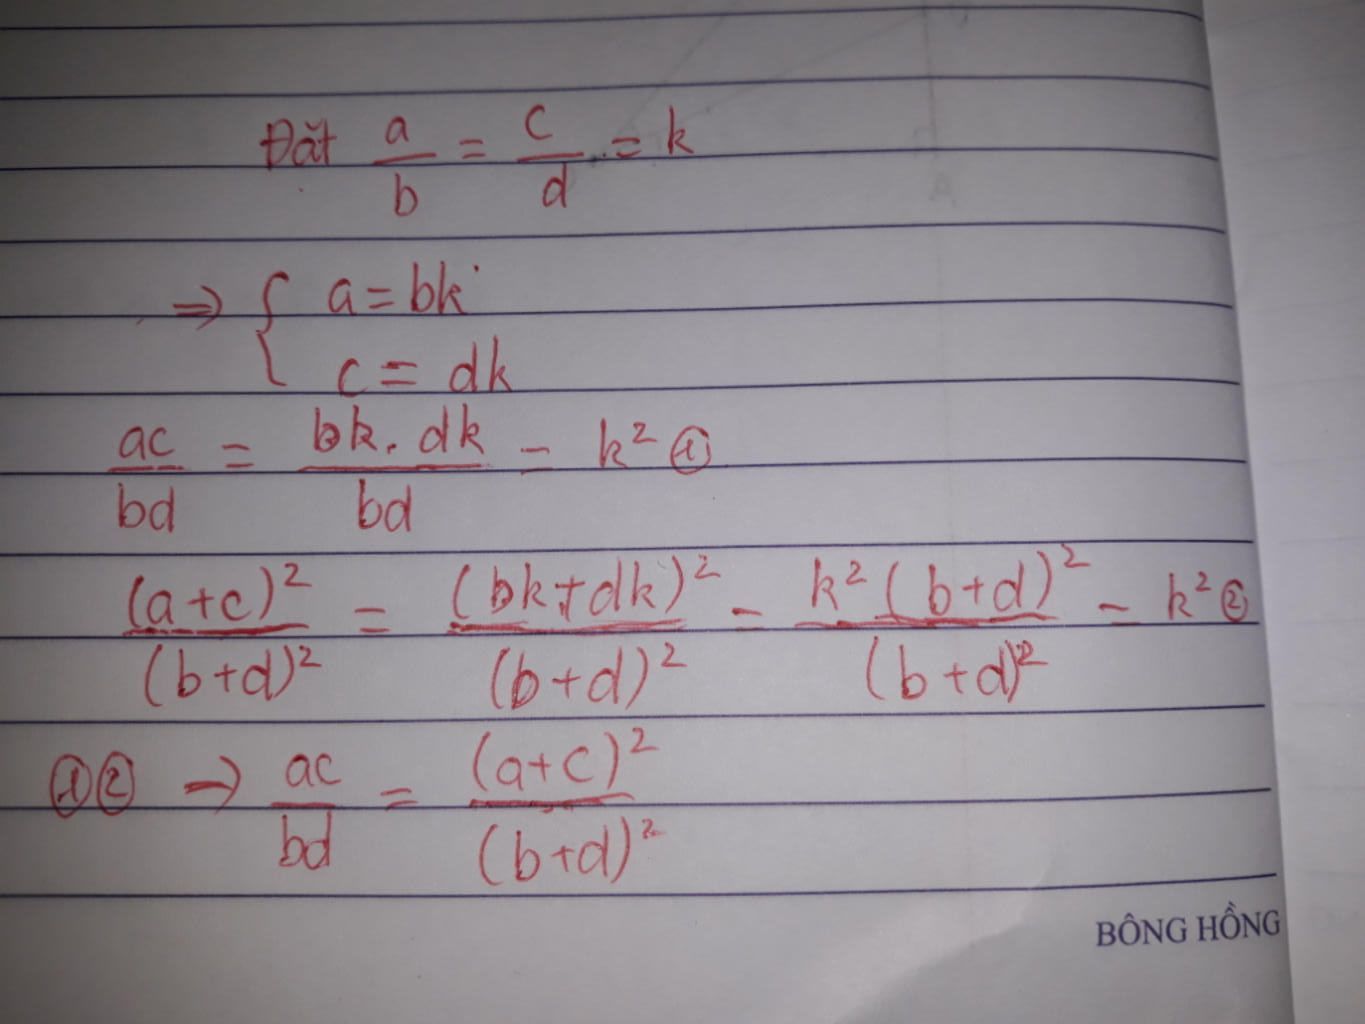 Đặt a/b = c/d = k
⇒ { a = bk
c = dk
ac/bd = bk.dk/bd = k² ①
(a+c)²/(b+d)² = (bk+dk)²/(b+d)² = k²(b+d)²/(b+d)² = k² ②
①② → ac/bd = (a+c)²/(b+d)²
BÔNG HỒNG